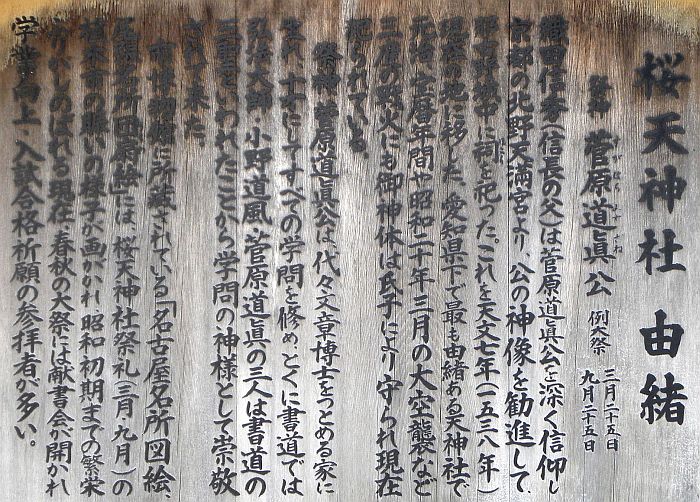 桜天神社 由緒
祭神 菅原道眞公 例大祭 三月二十五日 九月二十五日
すがはらみちざね
織田信秀(信長の父)は菅原道眞公を深く信仰し
京都の北野天満宮より、公の神像を勧進して
那古野城中に祠を祀った。これを天文七年(一五三八年)
現在の地に移した。愛知県下で最も由緒ある天神社で
元治、宝暦年間や昭和二十年三月の大空襲など
三度の戦火にも御神体は氏子により守られ現在
祀られている。
祭神、菅原道眞公は、代々文章博士をつとめる家に
生れ、十才にしてすべての学問を修め、とくに書道では
弘法大師・小野道風・菅原道眞の三人は書道の
三聖といわれたことから学問の神様として崇敬
されて来た。
市博物館に所蔵されている「名古屋名所図絵、
尾張名所図扇絵」には、桜天神社祭礼(三月・九月)の
植木市の賑いの様子が画がかれ昭和初期までの繁栄
がしのばれる。現在、春秋の大祭には献書会が開かれ
学業向上・入試合格祈願の参拝者が多い。